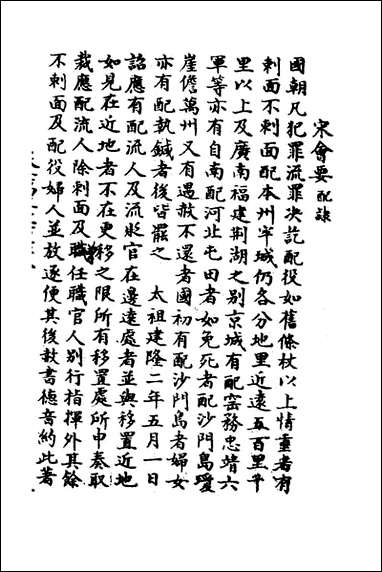 宋會要 配隷
國朝凡犯罪流罪决訖配役如舊條杖以上情重者有
刺面不刺面配本州牢城仍各分地里近遠五百里千
里以上及廣南福建荆湖之别京城有配窑務忠靖六
軍等亦有自南配河北屯田者如免死者配沙門島瓊
崖儋萬州又有遇赦不還者國初有配沙門島者婦女
亦有配執鍼者後皆罷之　太祖建隆二年五月一日
詔應有配流人及流貶官在邊遠處者並與移置近地
如見在近地者不在更移之限所有移置處所申奏取
裁應配流人除刺面及職任職官人别行指揮外其餘
不刺面及配役婦人並放逐便其後赦書德音約此著